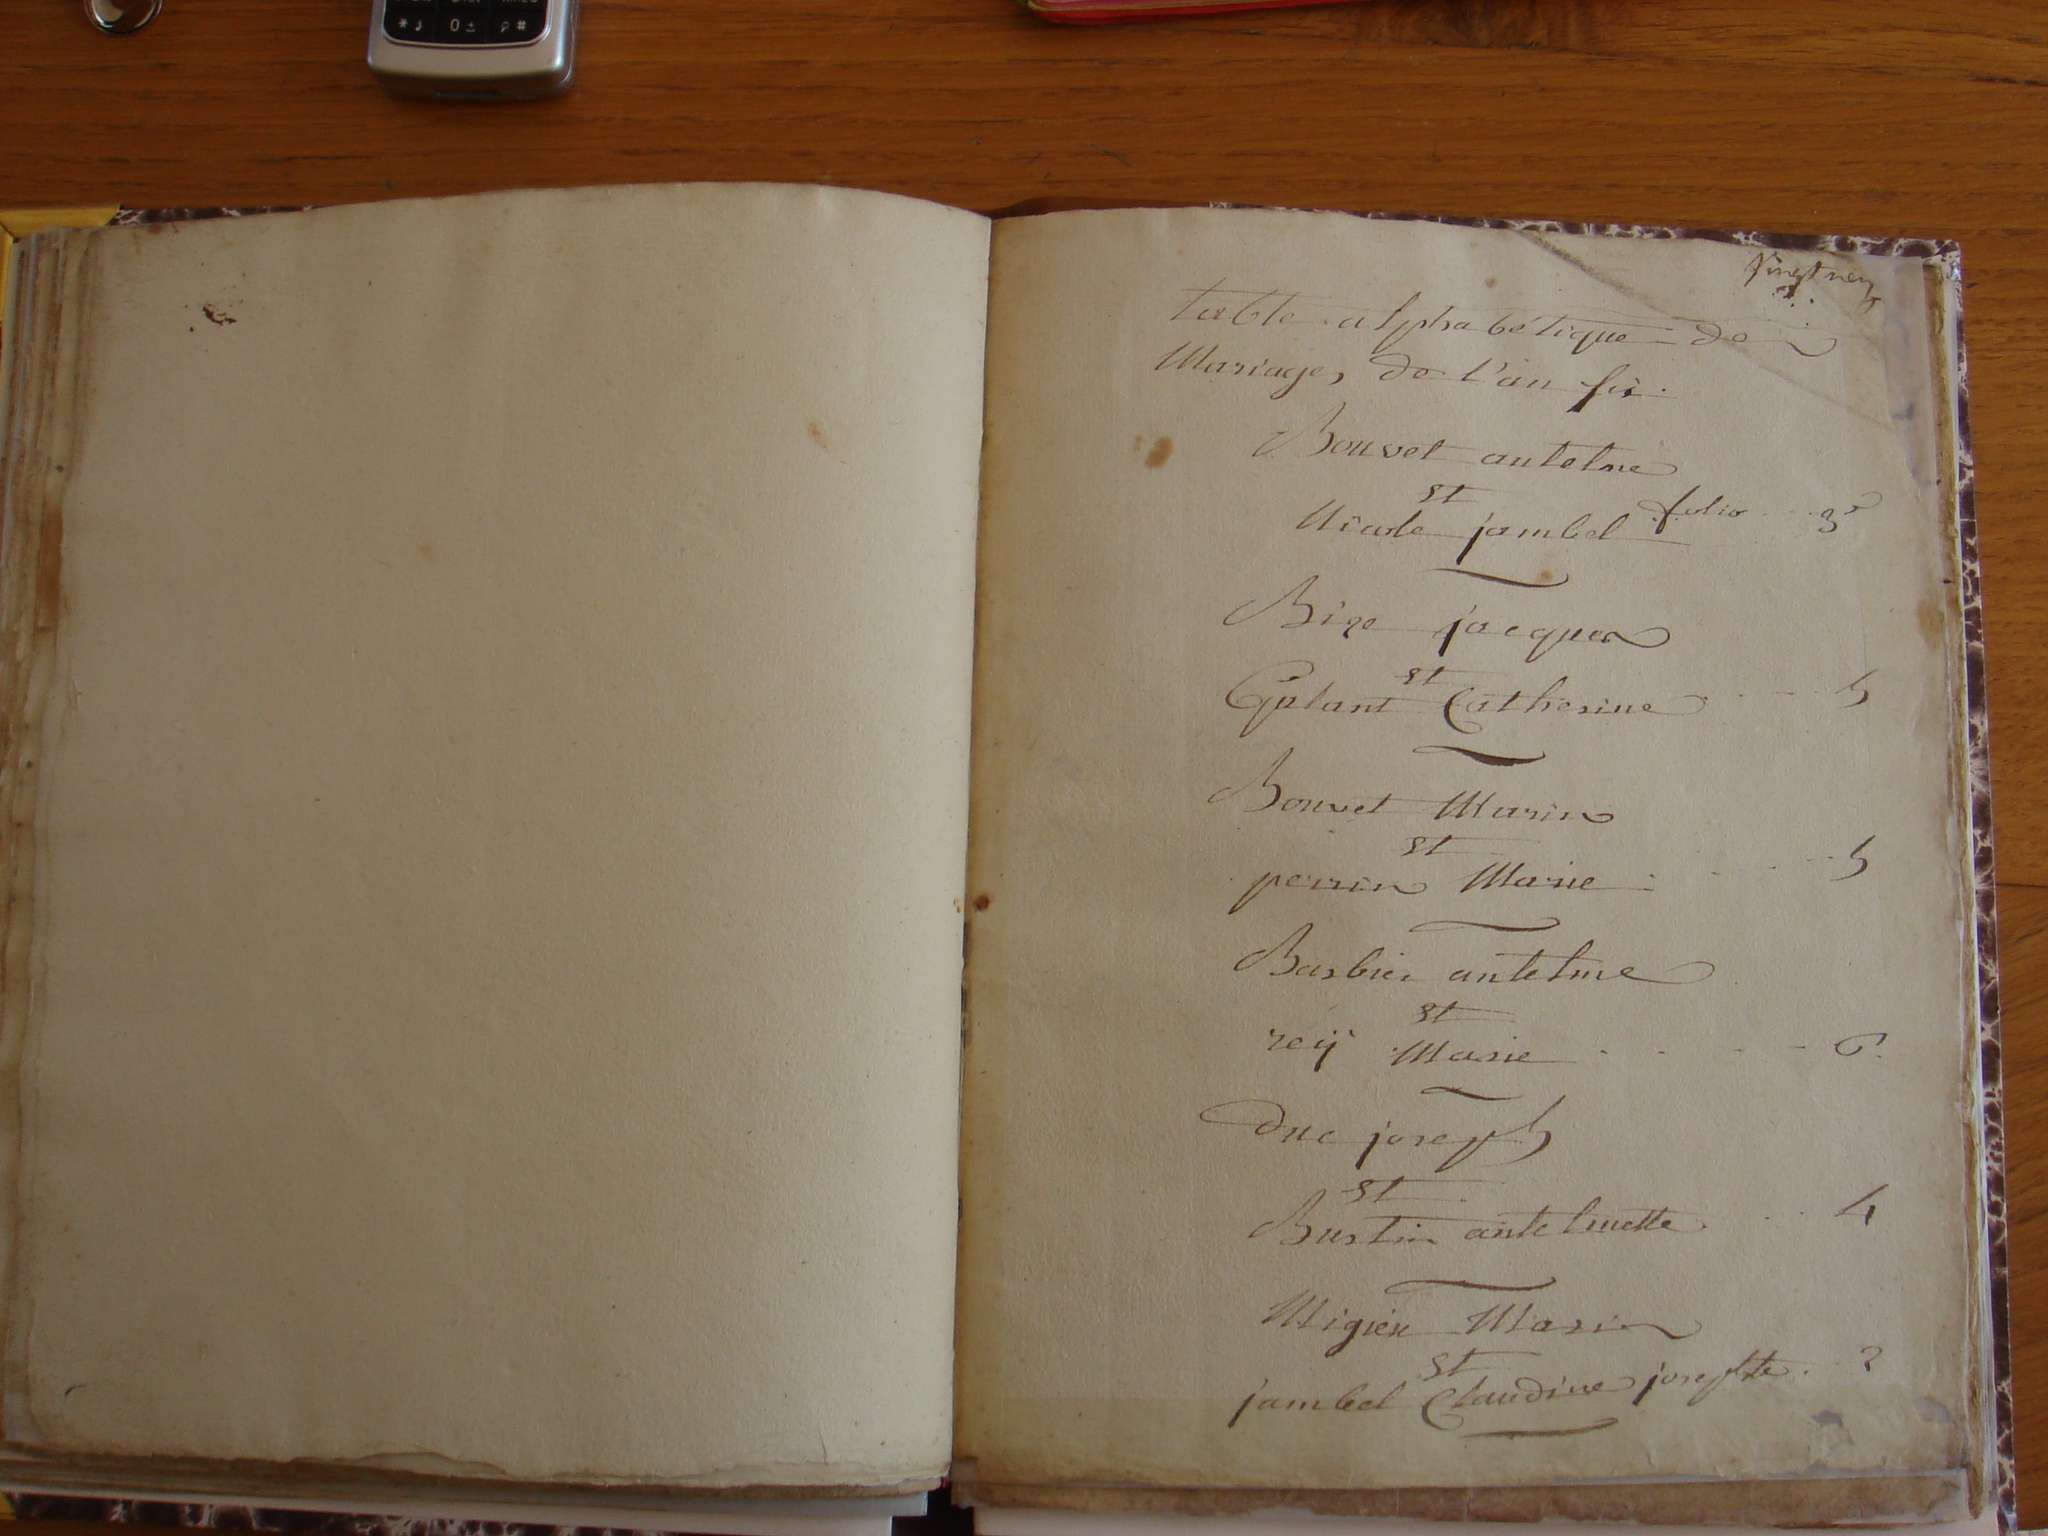 * 0 ± #
vingt neuf
table alphabétique de
Mariages de l'an six.
Bouvet antelme
et
Nicole jambel folio 3
Bize jacques
et
Galant Catherine 5
Bouvet Marin
et
perrin Marie 5
Barbier antelme
et
reÿ Marie 6.
Duc joseph
et
Bustin antelmette 4
Migieu Marin
et
jambel Claudine josephte. 2